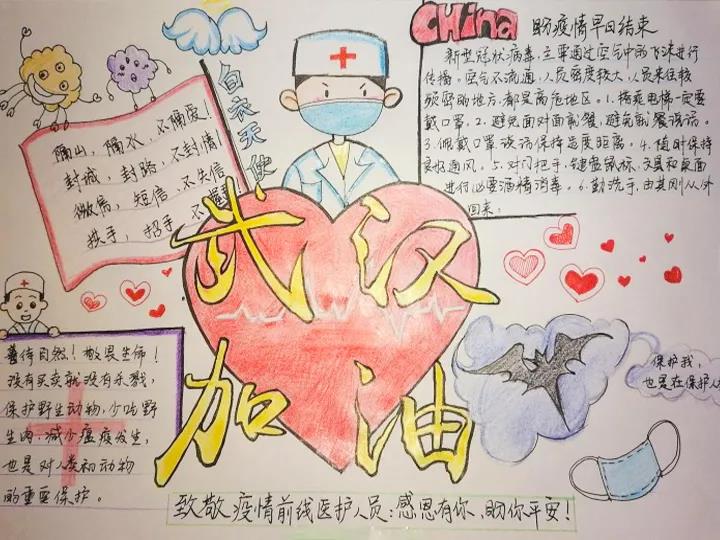 CHina
盼疫情早日结束
新型冠状病毒，主要通过空气中的飞沫进行
传播。空气不流通，人员密度较大，人员来往较
频繁的地方，都是高危地区。1.搭乘电梯一定要
戴口罩，2.避免面对面就餐，避免就餐说话。
3.佩戴口罩谈话保持适度距离。4.随时保持
良好通风。5.对门把手、键盘鼠标、文具和桌面
进行必要酒精消毒。6.勤洗手，尤其刚从外
回来。
白衣天使
隔山，隔水，不隔爱！
封城，封路，不封情！
微信，短信，不失信
扶手，招手，不
武汉
加油
善待自然！敬畏生命！
没有买卖就没有杀戮，
保护野生动物，少吃野
生肉，减少瘟疫发生，
也是对人类和动物
的重要保护。
保护我，
也是在保护人
致敬疫情前线医护人员：感恩有你，盼你平安！